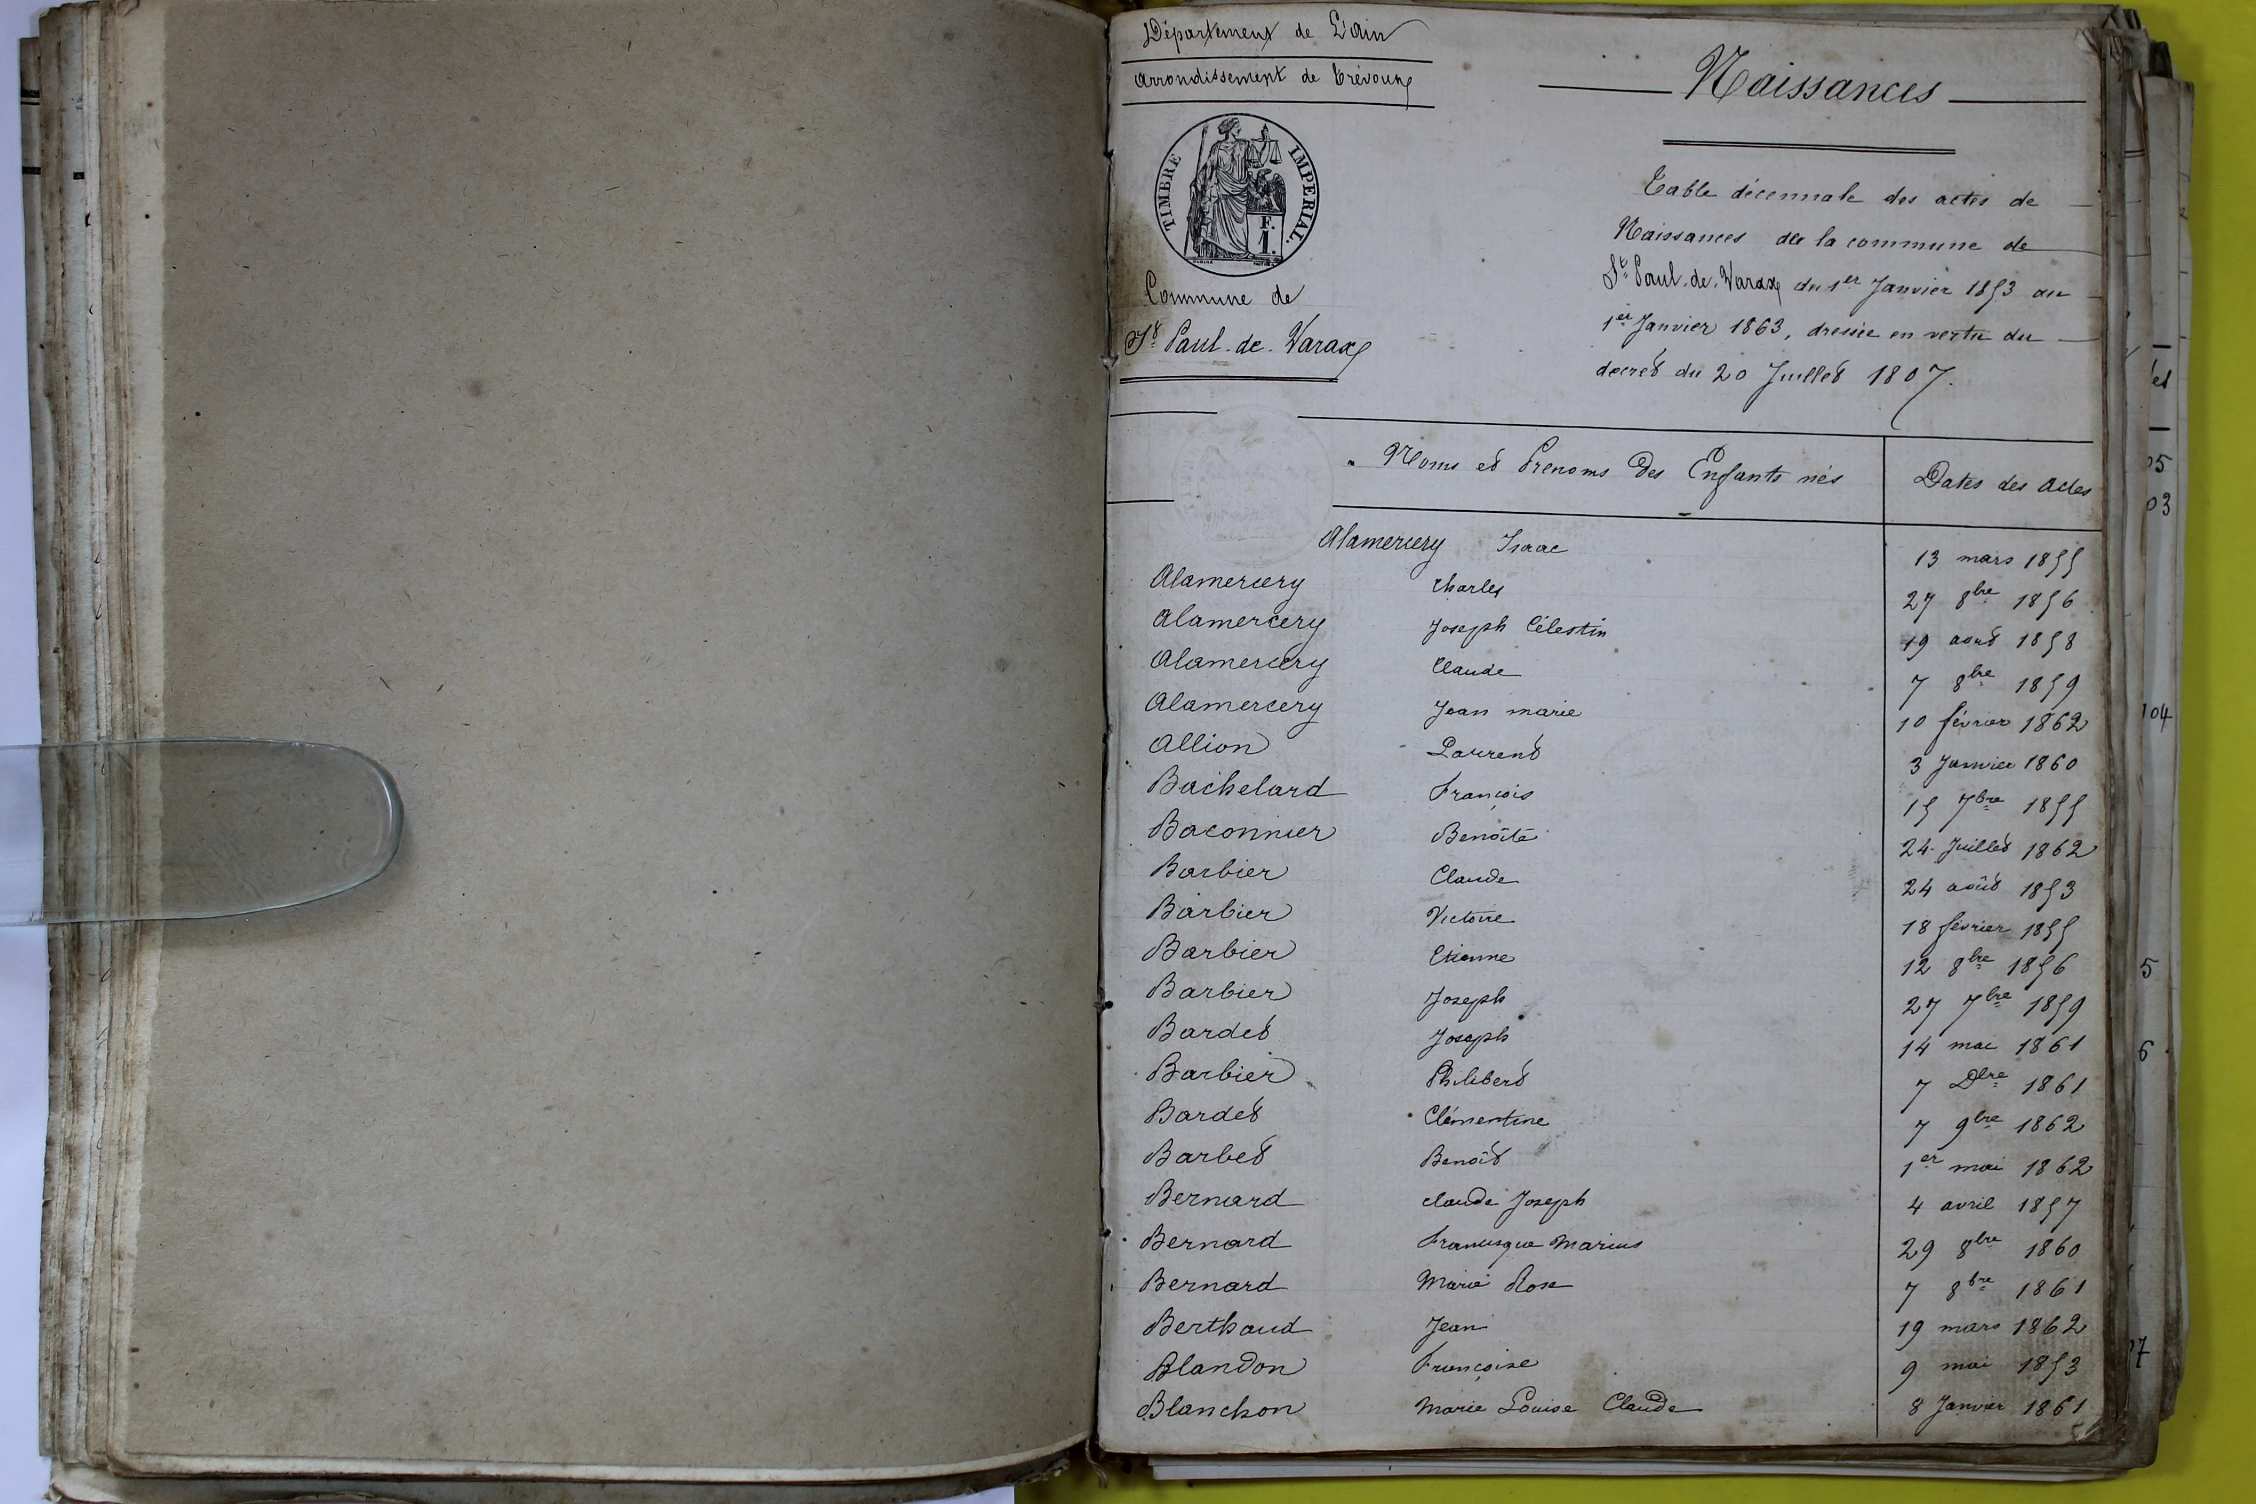 Département de L'Ain
Arrondissement de Trévoux
TIMBRE IMPERIAL.
F.
1.
Commune de
St Paul-de-Varax
Naissances
Table décennale des actes de
Naissances de la commune de
St Paul-de-Varax du 1er Janvier 1853 au
1er Janvier 1863, dressée en vertu du
décret du 20 Juillet 1807.
Noms et Prenoms des Enfants nés Dates des Actes
Alamercery Isaac 13 mars 1855
Alamercery Charles 27 8bre 1856
Alamercery Joseph Célestin 19 août 1858
Alamercery Claude 7 8bre 1859
Alamercery Jean marie 10 février 1862
Allion Laurent 3 Janvier 1860
Bachelard François 15 7bre 1855
Baconnier Benoîte 24 Juillet 1862
Barbier Claude 24 août 1853
Barbier Victoire 18 février 1855
Barbier Etienne 12 8bre 1856
Barbier Joseph 27 7bre 1859
Bardet Joseph 14 mai 1861
Barbier Philibert 7 Dbre 1861
Bardet Clémentine 7 9bre 1862
Barbet Benoît 1er mai 1862
Bernard Claude Joseph 4 avril 1857
Bernard Francisque Marius 29 8bre 1860
Bernard Marie Rose 7 8bre 1861
Berthaud Jean 19 mars 1862
Blandon Françoise 9 mai 1853
Blanchon Marie Louise Claude 8 Janvier 1861
03
104
5
6